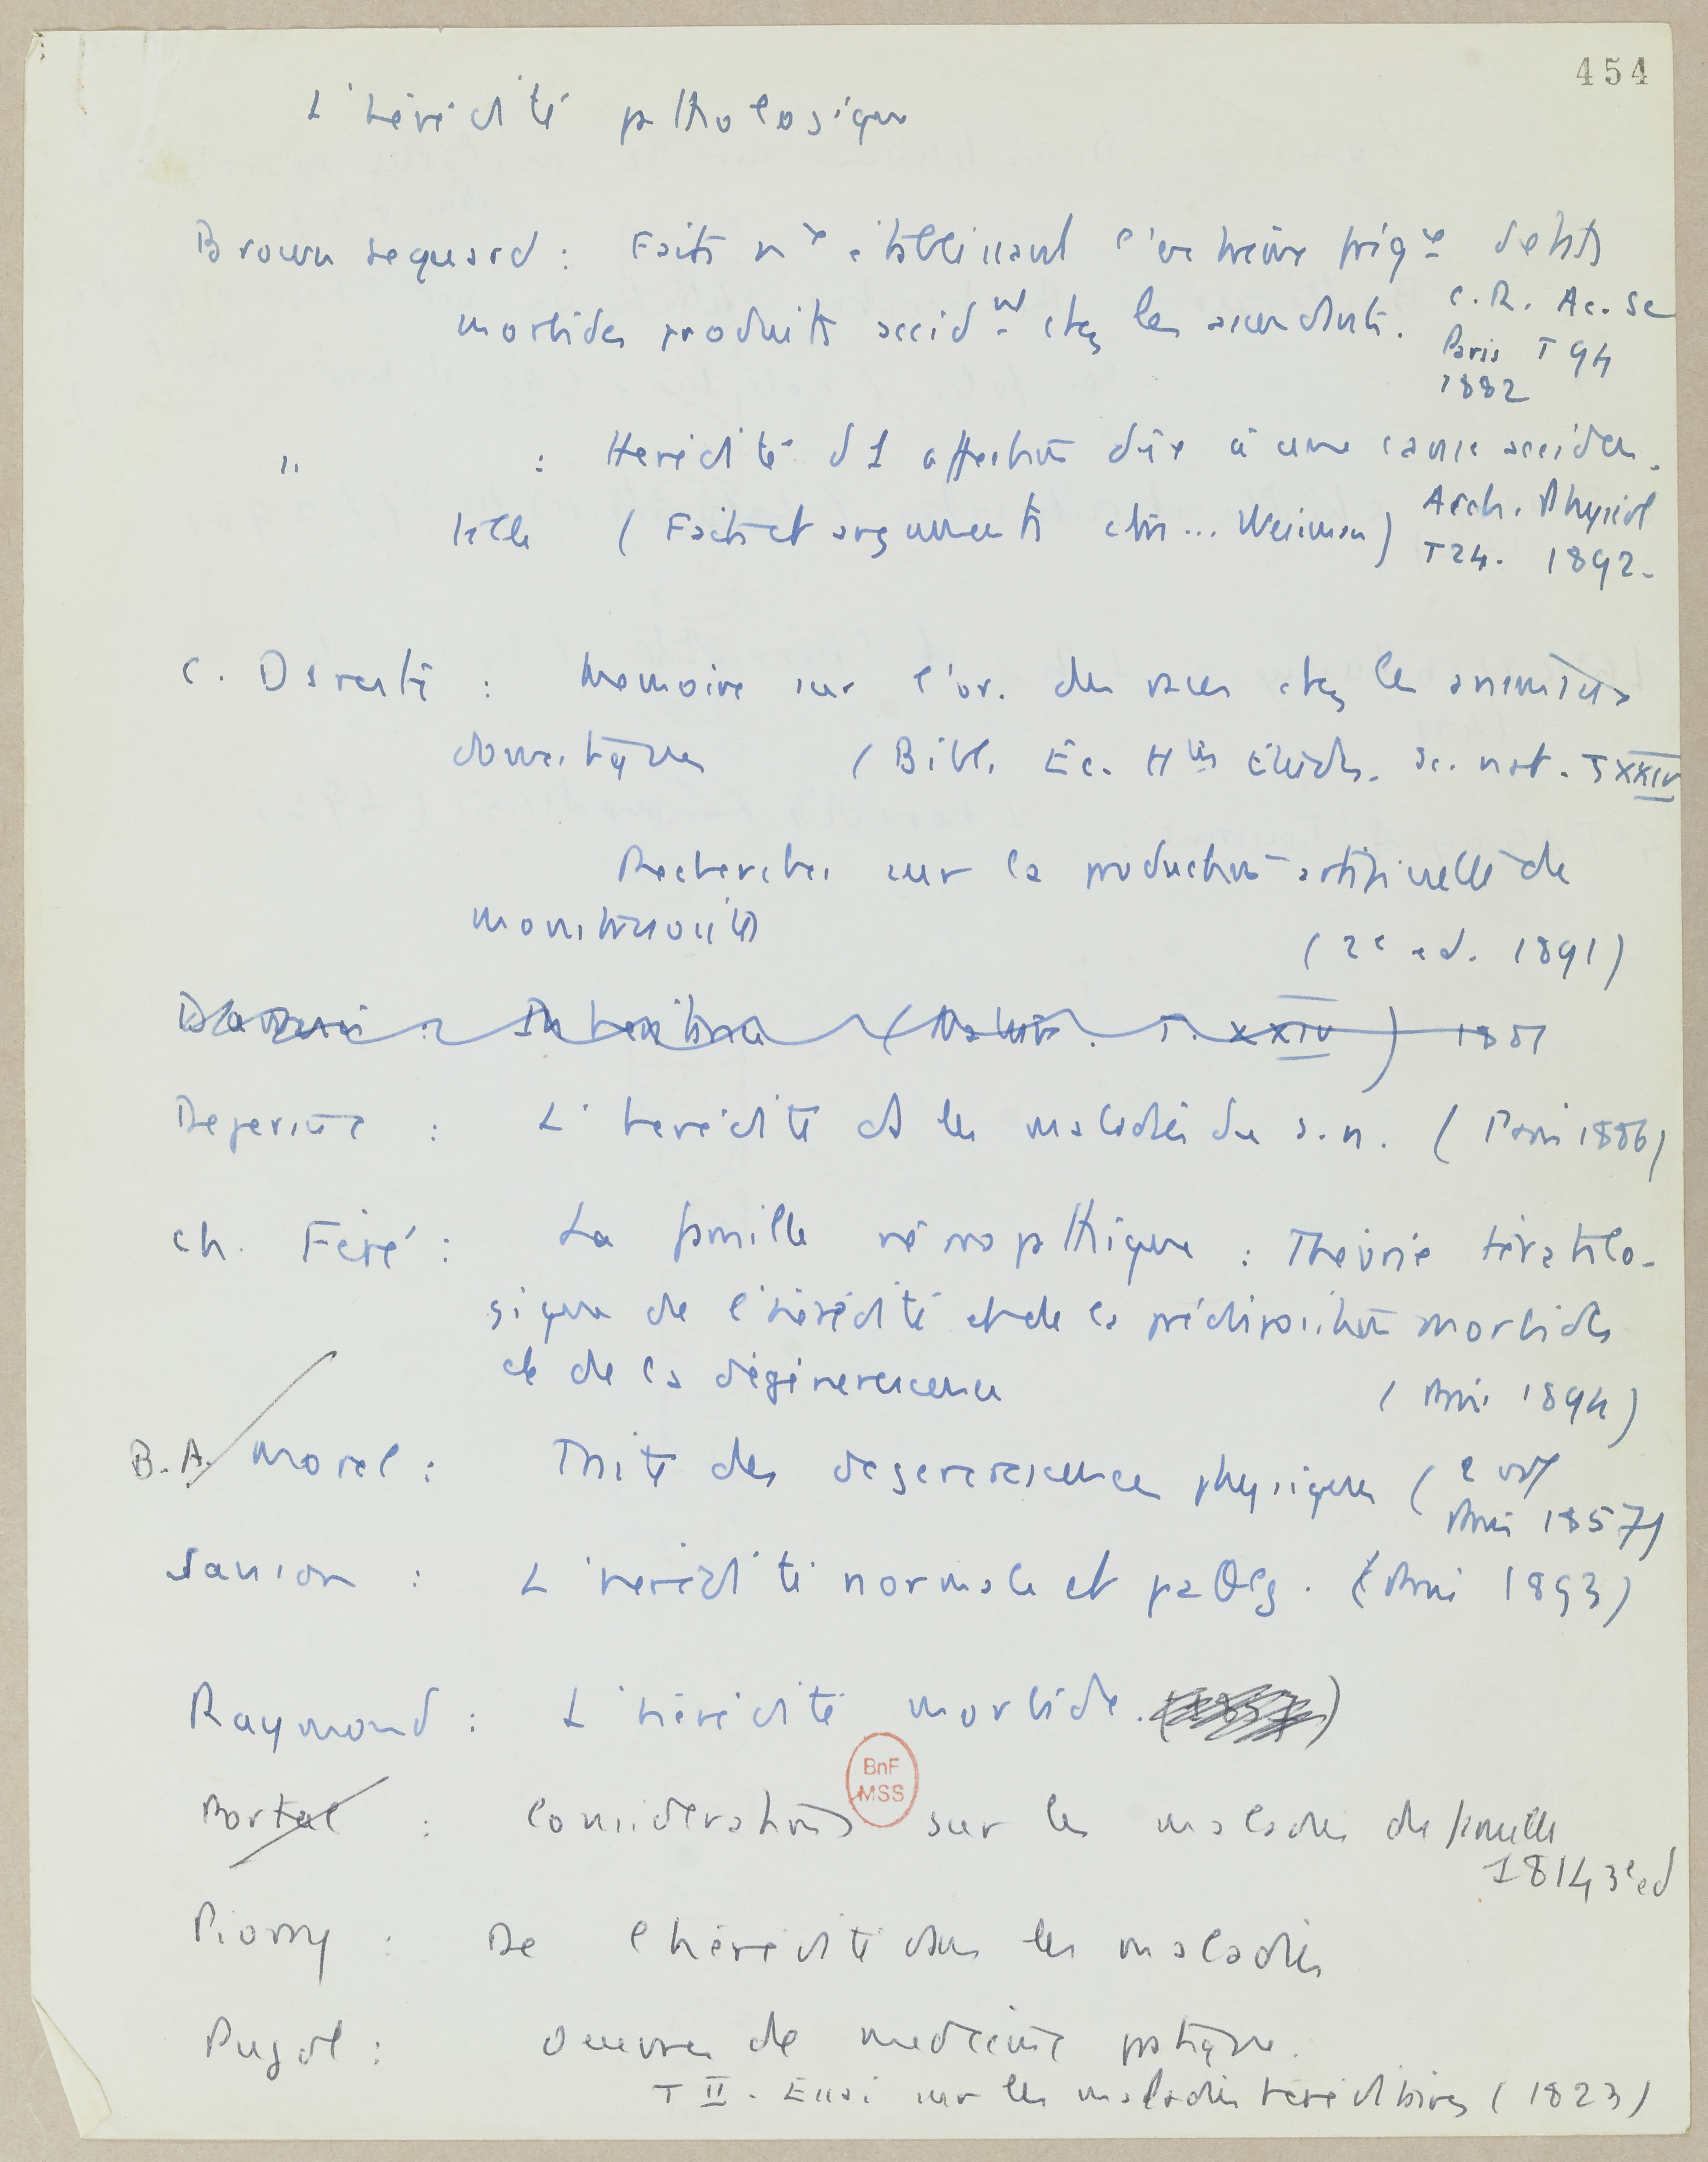 454
L'hérédité pathologique
Brown sequard : Faits nx établissant l'extrême fréqce d'états
morbides produits accidnt chez les ascendants. C.R. Ac. Sc
Paris T 94
1882
" : Heredité d1 affection dûe à une cause acciden-
telle (Faits et arguments ctre... Weisman) Arch. Physiol
T24. 1892-
C. Dareste : Memoire sur l'or. des races chez les animaux
domestiques (Bibl. Ec. Htes Etudes. Sc. nat. T XXXIV
Recherches sur la production artificielle de
monstruosités
(2e ed. 1891)
(Nature. T. XXIV) 1881
Dejerine : L'heredité ds les maladies du s.n. (Paris 1886)
Ch. Féré : La famille névropathique : Theorie tératolo-
gique de l'hérédité et de la prédisposition morbides
et de la dégénerescence (Paris 1894)
B.A. Morel : Traité des degenerescences physiques (2 vol
Paris 1857)
Sanson : L'heredité normale et patholg. (Paris 1893)
Raymond : L'hérédité morbide. (1857)
Portal : Considerations sur les maladies de famille
1814 3e ed
BnF
MSS
Piorry : De l'hérédité dans les maladies
Pujol : Oeuvres de medecine pratique.
T II. Essai sur les maladies héréditaires (1823)